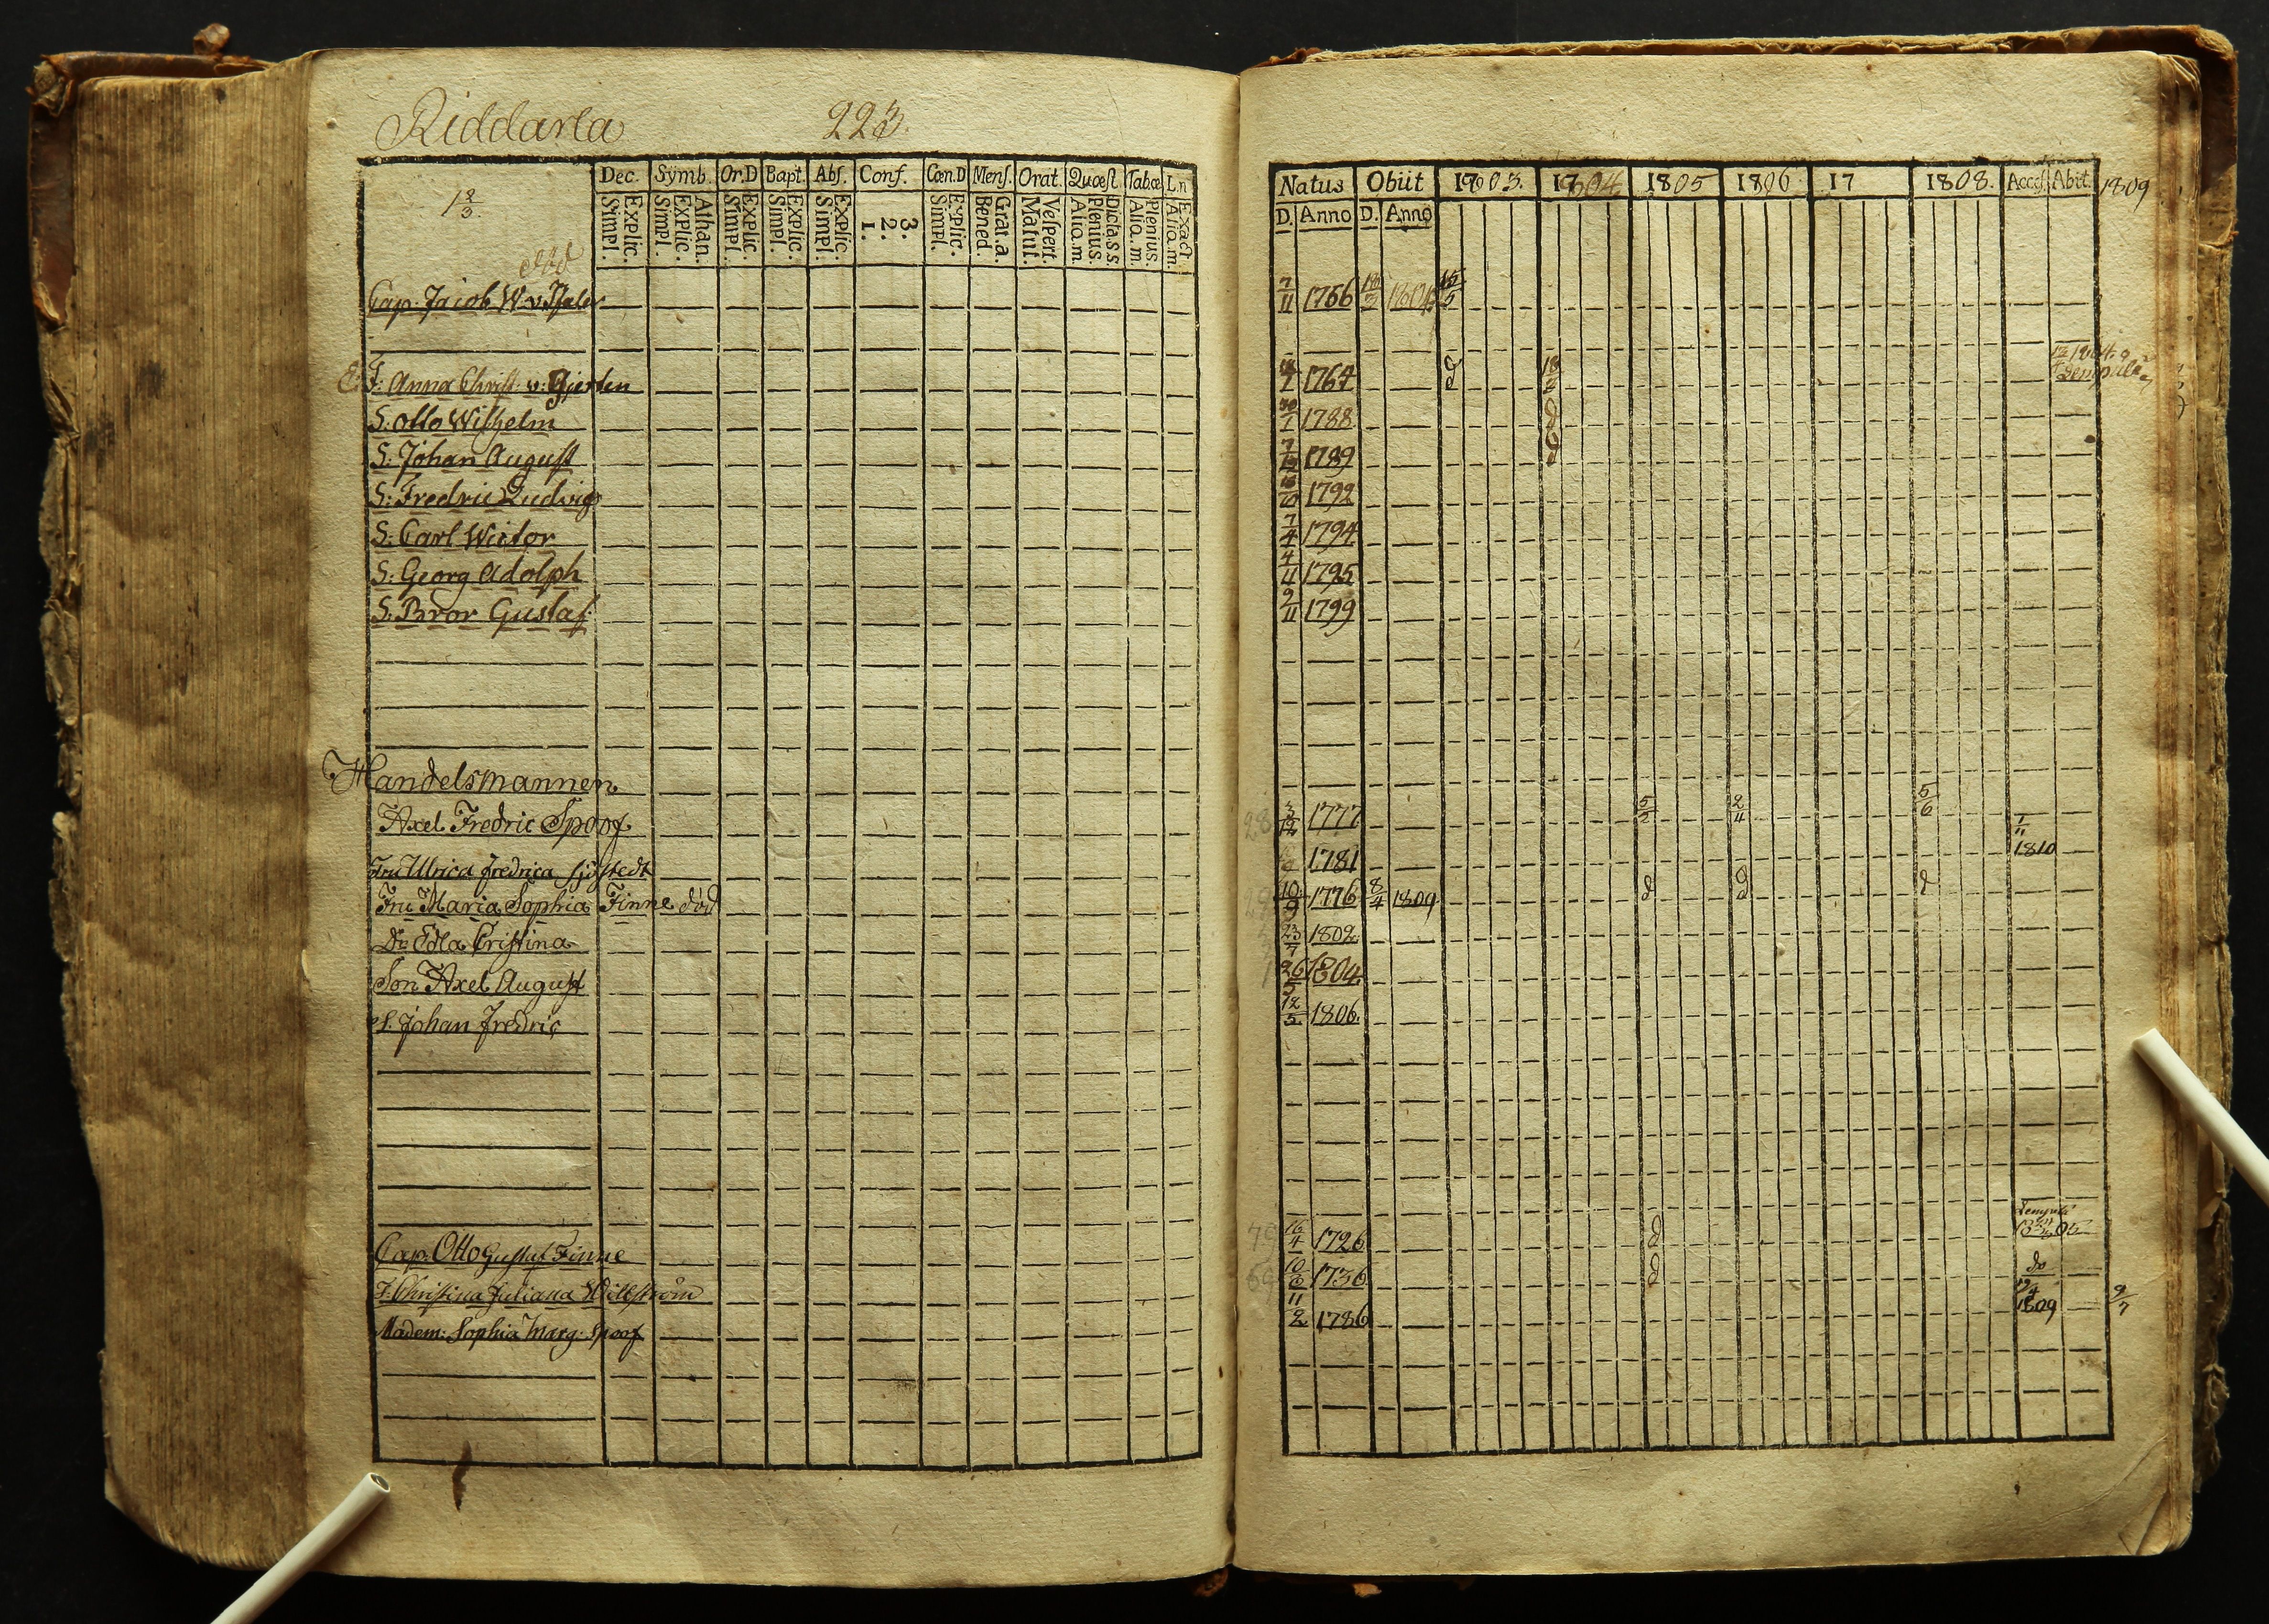 Riddarla 223.
Dec. Symb. Or.D Bapt. Abs. Conf. Cœn.D Mens. Orat. Quæst. Tabæ L.n
Explic. Simpl. Athan. Explic. Simpl. Explic. Simpl. Explic. Simpl. Explic. Simpl. 3. 2. 1. Explic. Simpl. Grat. a. Bened. Vespert. Matut. Dicta.s.s. Plenius. Alio.m. Plenius. Alio.m. Exact Alio.m.
död
Cap. Jacob W. v.
E. F: Anna Christ. v: Gjerten
S: Otto Wilhelm
S: Johan August
S: Fredric Ludvig
S: Carl Wictor
S: Georg Adolph
S: Bror Gustaf
Handelsmannen
Axel Fredric Spoof
Fru Ulrica Fredrica Sjöstedt
Fru Maria Sophia Finne död
Dr. Edla Cristina
Son Axel August
S. Johan Fredric
Cap. Otto Gustaf Finne
F. Christina Juliana
Madem: Sophia Marg. Spoof
Natus Obiit 1803. 1804 1805 1806 17 1808. Access. Abit. 1809
D. Anno D. Anno
7/11 1766 1804 15/5
1764
1788
1789
1792
7/4 1794
4/11 1795
9/11 1799
28 3/12 1777 5/2 2/4 5/6 1/11
1781 1810
10/9 1776 8/4 1809
23/7 1802
26/5 1804
12/3 1806.
16/4 1726
1736 do
11/2 1786 1809 9/7